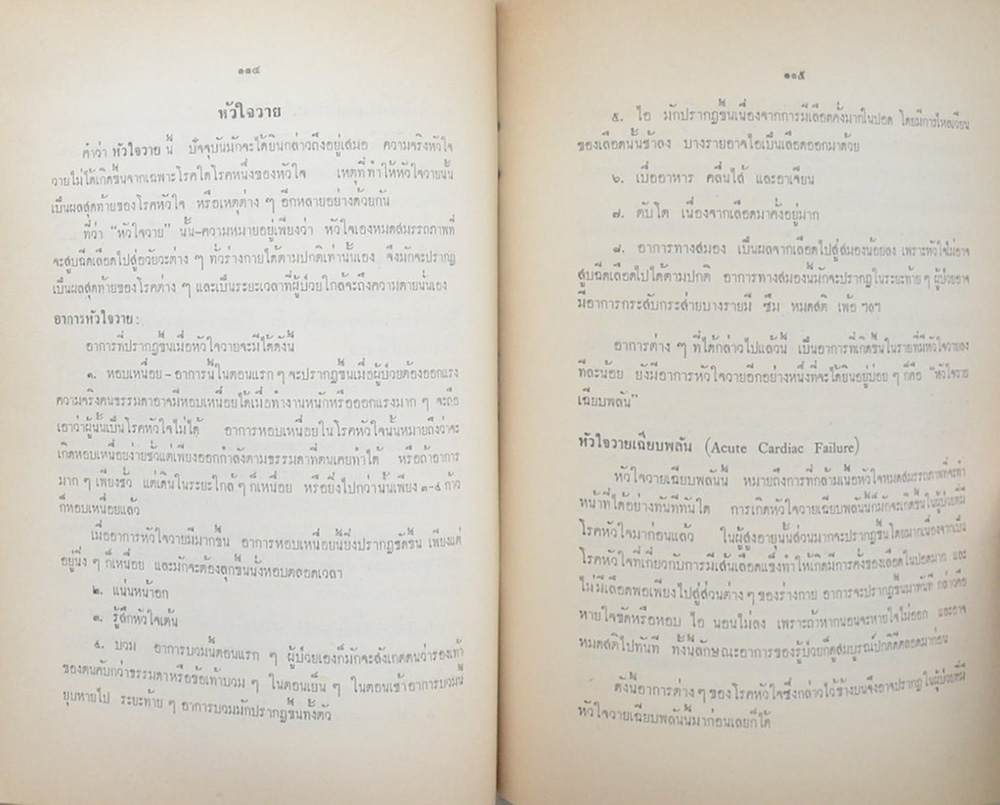 ๑๑๔
หัวใจวาย
คำว่า หัวใจวาย นี้ ปัจจุบันมักจะได้ยินกล่าวถึงอยู่เสมอ ความจริงหัวใจ
วายไม่ได้เกิดขึ้นจากเฉพาะโรคใดโรคหนึ่งของหัวใจ เหตุที่ทำให้หัวใจวายนั้น
เป็นผลสุดท้ายของโรคหัวใจ หรือเหตุต่าง ๆ อีกหลายอย่างด้วยกัน
ที่ว่า "หัวใจวาย" นั้น-ความหมายอยู่เพียงว่า หัวใจเองหมดสมรรถภาพที่
จะสูบฉีดเลือดไปสู่อวัยวะต่าง ๆ ทั่วร่างกายได้ตามปกติเท่านั้นเอง จึงมักจะปรากฏ
เป็นผลสุดท้ายของโรคต่าง ๆ และเป็นระยะเวลาที่ผู้ป่วยใกล้จะถึงความตายนั่นเอง
อาการหัวใจวาย:
อาการที่ปรากฏขึ้นเมื่อหัวใจวายจะมีได้ดังนี้
๑. หอบเหนื่อย-อาการนี้ในตอนแรก ๆ จะปรากฏขึ้นเมื่อผู้ป่วยต้องออกแรง
ความจริงคนธรรมดาอาจมีหอบเหนื่อยได้เมื่อทำงานหนักหรือออกแรงมาก ๆ จะถือ
เอาว่าผู้นั้นเป็นโรคหัวใจไม่ได้ อาการหอบเหนื่อยในโรคหัวใจนั้นหมายถึงว่าจะ
เกิดหอบเหนื่อยง่ายชั่วแต่เพียงออกกำลังตามธรรมดาที่ตนเคยทำได้ หรือถ้าอาการ
มาก ๆ เพียงชั่ว แต่เดินในระยะใกล้ ๆ ก็เหนื่อย หรือยิ่งไปกว่านั้นเพียง ๓-๔ ก้าว
ก็หอบเหนื่อยแล้ว
เมื่ออาการหัวใจวายมีมากขึ้น อาการหอบเหนื่อยนี้ยิ่งปรากฏชัดขึ้น เพียงแต่
อยู่นิ่ง ๆ ก็เหนื่อย และมักจะต้องลุกขึ้นนั่งหอบตลอดเวลา
๒. แน่นหน้าอก
๓. รู้สึกหัวใจเต้น
๔. บวม อาการบวมนี้ตอนแรก ๆ ผู้ป่วยเองก็มักจะสังเกตตนว่ารองเท้า
ของตนคับกว่าธรรมดาหรือข้อเท้าบวม ๆ ในตอนเย็น ๆ ในตอนเช้าอาการบวมนี้
ยุบหายไป ระยะท้าย ๆ อาการบวมมักปรากฏขึ้นทั้งตัว
๑๑๕
๕. ไอ มักปรากฏขึ้นเนื่องจากการมีเลือดคั่งมากในปอด โดยมีการไหลเวียน
ของเลือดนั้นช้าลง บางรายอาจไอเป็นเลือดออกมาด้วย
๖. เบื่ออาหาร คลื่นไส้ และอาเจียน
๗. ตับโต เนื่องจากเลือดมาคั่งอยู่มาก
๘. อาการทางสมอง เป็นผลจากเลือดไปสู่สมองน้อยลง เพราะหัวใจไม่อาจ
สูบฉีดเลือดไปได้ตามปกติ อาการทางสมองนี้มักจะปรากฏในระยะท้าย ๆ ผู้ป่วยอาจ
มีอาการกระสับกระส่ายบางรายมี ซึม หมดสติ เพ้อ ฯลฯ
อาการต่าง ๆ ที่ได้กล่าวไปแล้วนี้ เป็นอาการที่เกิดขึ้นในรายที่มีหัวใจวายลง
ทีละน้อย ยังมีอาการหัวใจวายอีกอย่างหนึ่งที่จะได้ยินอยู่บ่อย ๆ ก็คือ "หัวใจวาย
เฉียบพลัน"
หัวใจวายเฉียบพลัน (Acute Cardiac Failure)
หัวใจวายเฉียบพลันนี้ หมายถึงการที่กล้ามเนื้อหัวใจหมดสมรรถภาพที่จะทำ
หน้าที่ได้อย่างทันทีทันใด การเกิดหัวใจวายเฉียบพลันนี้ก็มักจะเกิดขึ้นในผู้ป่วยที่มี
โรคหัวใจมาก่อนแล้ว ในผู้สูงอายุนั้นส่วนมากจะปรากฏขึ้นโดยมากเนื่องจากเป็น
โรคหัวใจที่เกี่ยวกับการมีเส้นเลือดแข็งทำให้เกิดมีการคั่งของเลือดในปอดมาก และ
ไม่มีเลือดพอเพียงไปสู่ส่วนต่าง ๆ ของร่างกาย อาการจะปรากฏขึ้นมาทันที กล่าวคือ
หายใจขัดหรือหอบ ไอ นอนไม่ลง เพราะถ้าหากนอนจะหายใจไม่ออก และอาจ
หมดสติไปทันที ทั้งนี้ลักษณะอาการของรูปป่วยก็ดูสมบูรณ์ปกติดีตลอดมาก่อน
ดังนั้นอาการต่าง ๆ ของโรคหัวใจซึ่งกล่าวไว้ข้างบนจึงอาจปรากฏในผู้ป่วยที่มี
หัวใจวายเฉียบพลันนี้มาก่อนเลยก็ได้